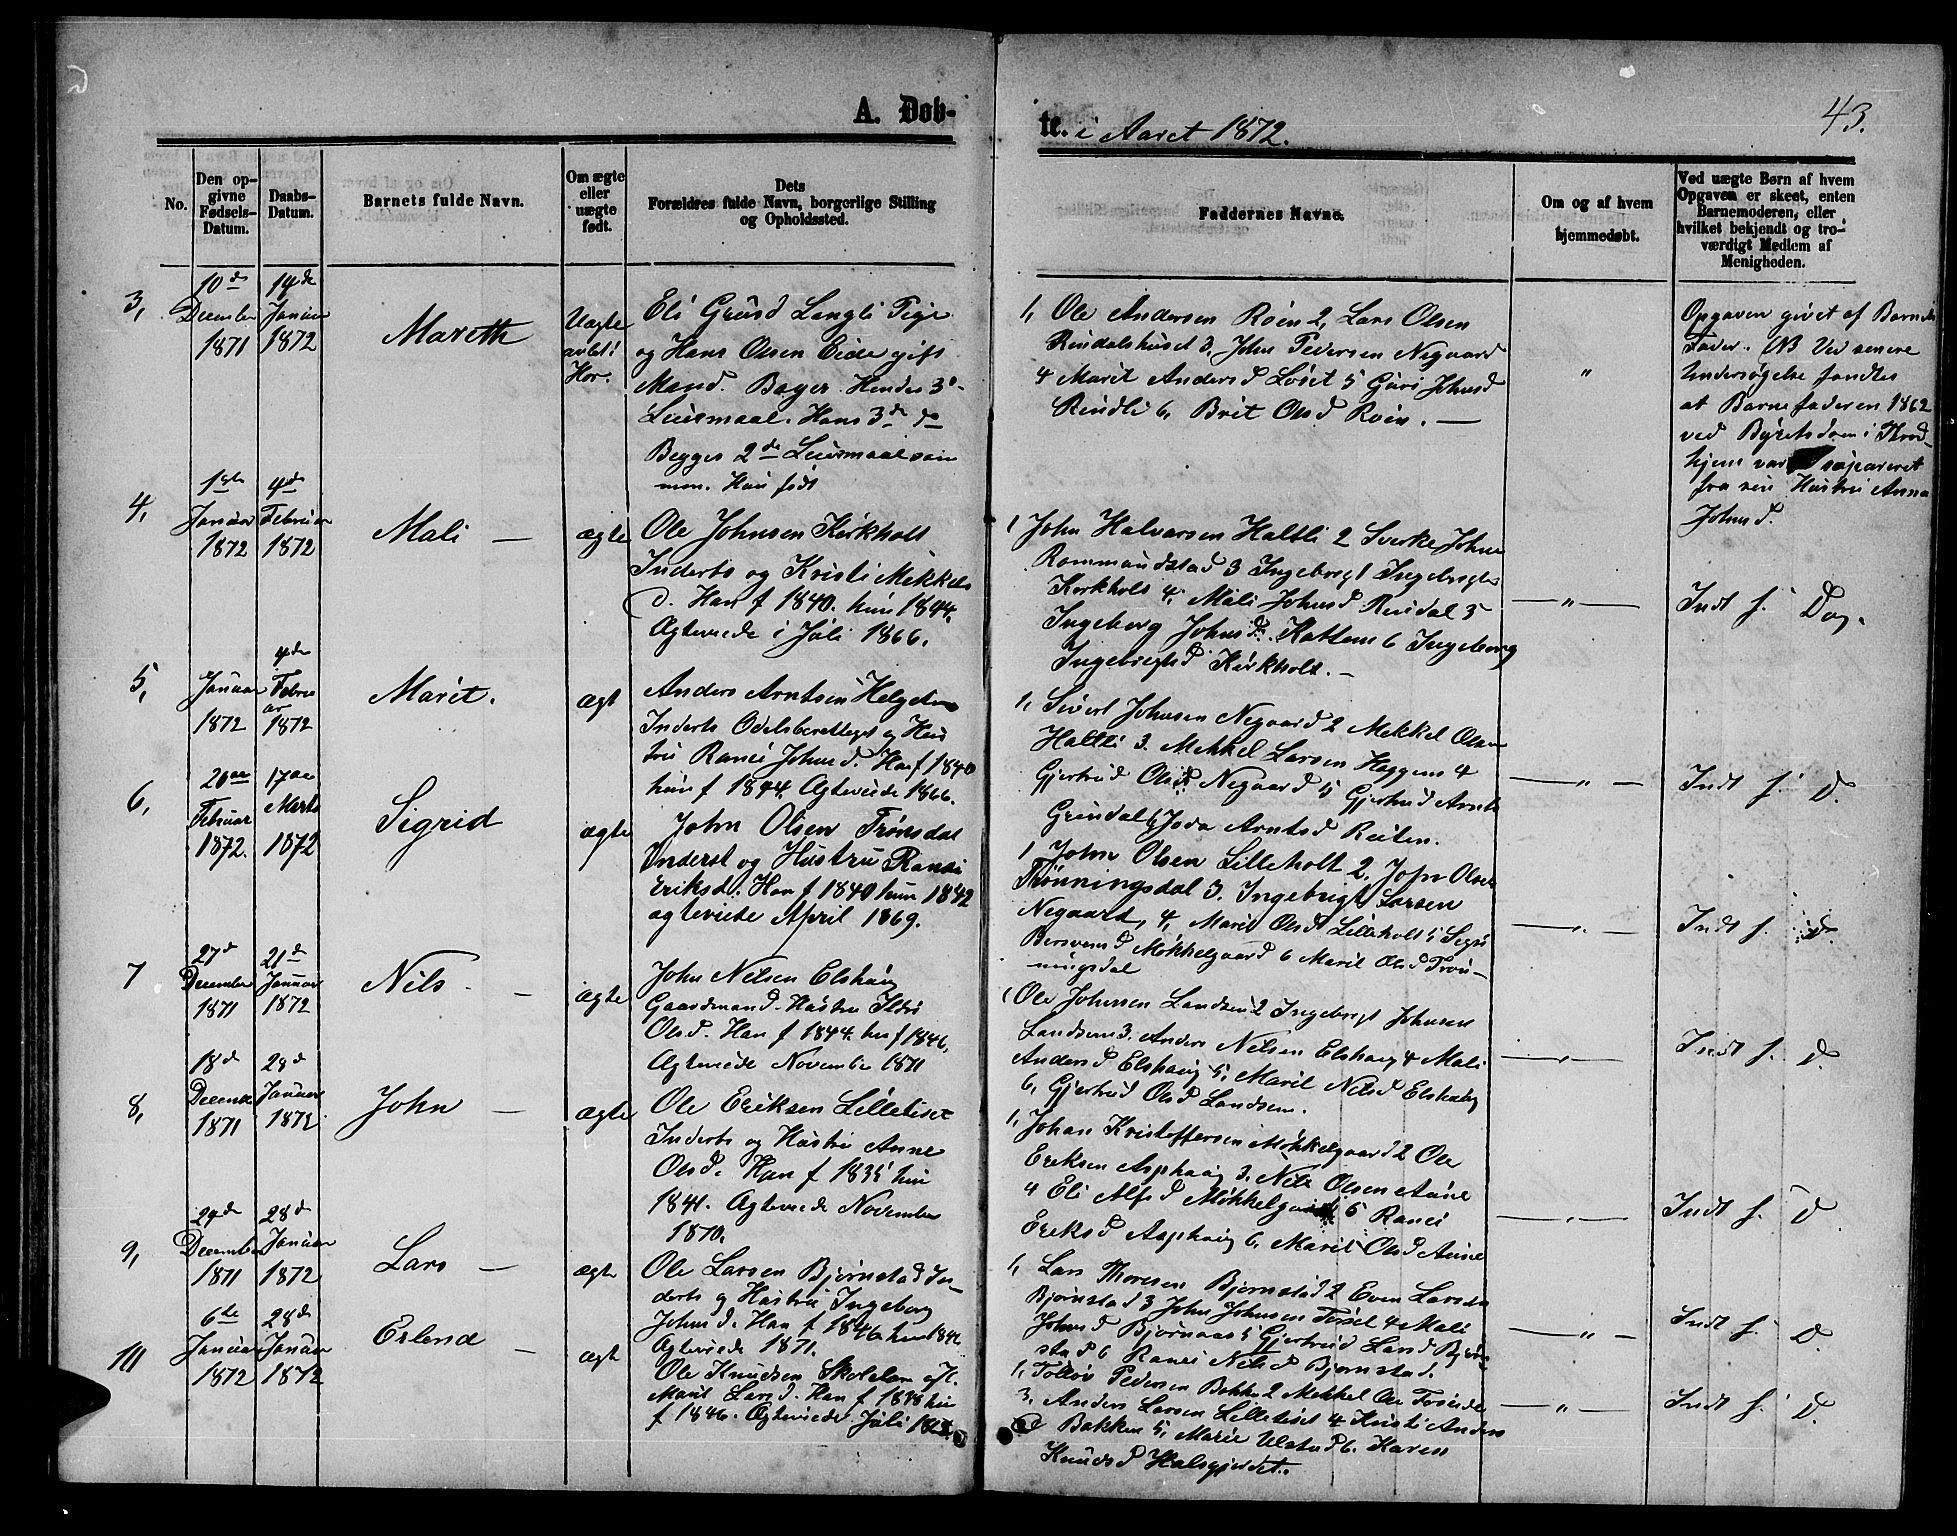 A. Døb-
te. i Aaret 1872.
43.
No.
Den op-
givne
Fødsels-
Datum.
Daabs-
Datum.
Barnets fulde Navn.
Om ægte
eller
uægte
født.
Dets
Forældres fulde Navn, borgerlige Stilling
og Opholdssted.
Faddernes Navne.
Om og af hvem
hjemmedøbt.
Ved uægte Børn af hvem
Opgaven er skeet, enten
Barnemoderen, eller
hvilket bekjendt og tro-
værdigt Medlem af
Menigheden.
3,
10de
December
1871
14de
Januar
1872
Mareth
Uægte
avlet i
Hor.
Eli Grusd Langli Pige
og Hans Olsen Eide gift
Mand. Bager. Hendes 3de
Leiermaal. Hans 3de do
Begges 2de Leiermaal sam
men. Hun født
1, Ole Andersen Roen 2, Lars Olsen
Rindalshuset 3, John Pedersen Negaard
4 Marit Andersd Løset 5 Guri Johnsd
Rindli 6, Brit Olsd Roen. —
"
Opgaven givet af Barnets
Fader. NB Ved senere
Undersøgelse fandtes
at Barnefaderen 1862
ved Byretsdom i Thrond-
hjem var separeret
fra sin Hustru Anna
Johnsd.
4,
Januar
1872
4de
Februar
1872
Mali —
ægte
Ole Johnsen Kirkholt
Inderts og Kristi Mekkels
d. Han f 1840. hun 1844.
Ægteviede i Juli 1866.
1 John Halvorsen Haltli 2 Sverke Johns
Rommundstad 3 Ingebrigt Ingebrigts
Kirkholt 4, Mali Johnsd Rindal 5
Ingeborg Johnsd. Kattem 6 Ingeborg
Ingebrigtsd Kirkholt. —
—"—
Indt f. Dag.
5,
Januar
1872
4de
Febru
ar
1872
Marit.
ægt
Anders Arntsen Helgetun
Inderts Odelsberettiget og Hus
tru Ranei Johnsd. Han f 1840
hun f 1844. Ægteviede 1866.
1, Sivert Johnsen Negaard 2 Mekkel Olsen
Haltli 3. Mekkel Larsen Haggens 4
Gjertrud Olsd Negaard 5 Gjertrud Arnts
Grindal 6 Arntsd Reiten.
—"—
Indt f. D.
6,
Februar
1872.
17de
Marts
1872
Sigrid
ægte
John Olsen Trønsdal
Inderst og Hustru Ranei
Eriksd. Han f 1840 hun 1842
ægteviede April 1869.
1 John Olsen Lilleholt 2, John Olsen
Trønningsdal 3. Ingebrigt Larsen
Negaard, 4, Marit Olsd Lilleholt 5 Sigri
Bersvensd Møkkelgaard 6 Marit Olsd Trøn-
ningsdal
—"—
Indt f. D.
7
27de
December
1871
21de
Januar
1872
Nils —
ægte
John Nilsen Elshaug
Gaardmand. Hustru Ildri
Olsd. Han f 1844. hun f 1846.
Ægteviede November 1871
1 Ole Johnsen Landsem 2 Ingebrigt Johnsen
Landsem 3. Anders Nilsen Elshaug 4 Mali
Andersd Elshaug 5, Marit Nilsd Elshaug
6, Gjertrud Olsd Landsem.
—"—
Indt f. D.
8,
18de
Decembr
1871
28de
Januar
1872
John —
ægte
Ole Eriksen Lilletiset
Inderts og Hustru Anne
Olsd. Han f 1835 hun
1841. Ægteviede November
1870.
1, Johan Kristoffersen Møkkelgaard 2 Ole
Eriksen Asphaug 3, Nils Olsen Aune
4 Eli Alfsd Møkkelgaard 5 Ranei
Eriksd Asphaug 6, Marit Olsd Aune
—"—
Indt f. D.
9,
29de
December
1871
28de
Januar
1872
Lars —
ægte
Ole Larsen Bjørnstad In-
derts og Hustru Ingeborg
Johnsd. Han f 1846 hun 1842
Ægteviede 1871.
1, Lars Thoresen Bjørnstad 2 Even Larsen
Bjørnstad 3 John Johnsen Tørset 4 Mali
Johnsd Bjørnaas 5 Gjertrud Larsd Bjørn-
stad 6 Ranei Nilsd Bjørnstad.
—"—
Indt f. D.
10
6te
Januar
1872
28de
Januar
1872
Erlend —
ægt
Ole Knudsen
Marit Larsd. Han f 1838 hun
f 1846. Ægteviede Juli
1, Pedersen Bakken 2 Mekkel Ols
3. Anders Larsen Lilletiset 4 Kristi Anders
Bakken 5, Marie Ulstad 6. Karen
Knudsd Halsgjerdet.
—"—
Indt f. D.